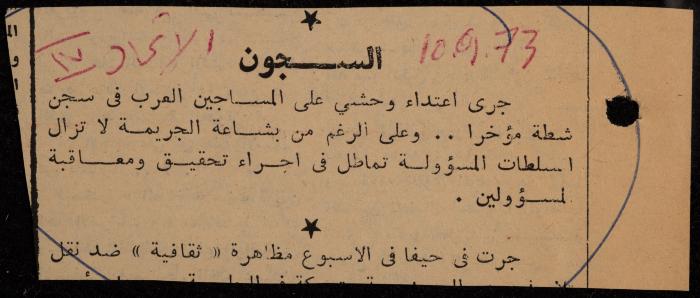 الاتحاد
10.9.73
السجون
جرى اعتداء وحشي على المساجين العرب فى سجن
شطة مؤخرا .. وعلى الرغم من بشاعة الجريمة لا تزال
السلطات المسؤولة تماطل فى اجراء تحقيق ومعاقبة
لمسؤولين .
جرت فى حيفا فى الاسبوع مظاهرة « ثقافية » ضد نقل